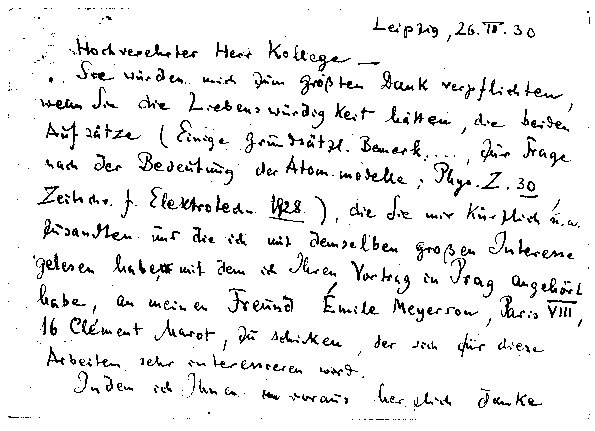 Leipzig, 26.III.30
Hochverehrter Herr Kollege —
Sie würden mich zum größten Dank verpflichten,
wenn Sie die Liebenswürdigkeit hätten, die beiden
Aufsätze (Einige grundsätzl. Bemerk. ..., Zur Frage
nach der Bedeutung der Atommodelle; Phys. Z. 30,
Zeitschr. f. Elektrotech. 1928), die Sie mir kürzlich
zusandten und die ich mit demselben großen Interesse
gelesen habe, mit dem ich Ihren Vortrag in Prag angehört
habe, an meinen Freund Émile Meyerson, Paris VIII,
16 Clément Marot, zu schicken, der sich für diese
Arbeiten sehr interessieren wird.
Indem ich Ihnen im voraus herzlich danke